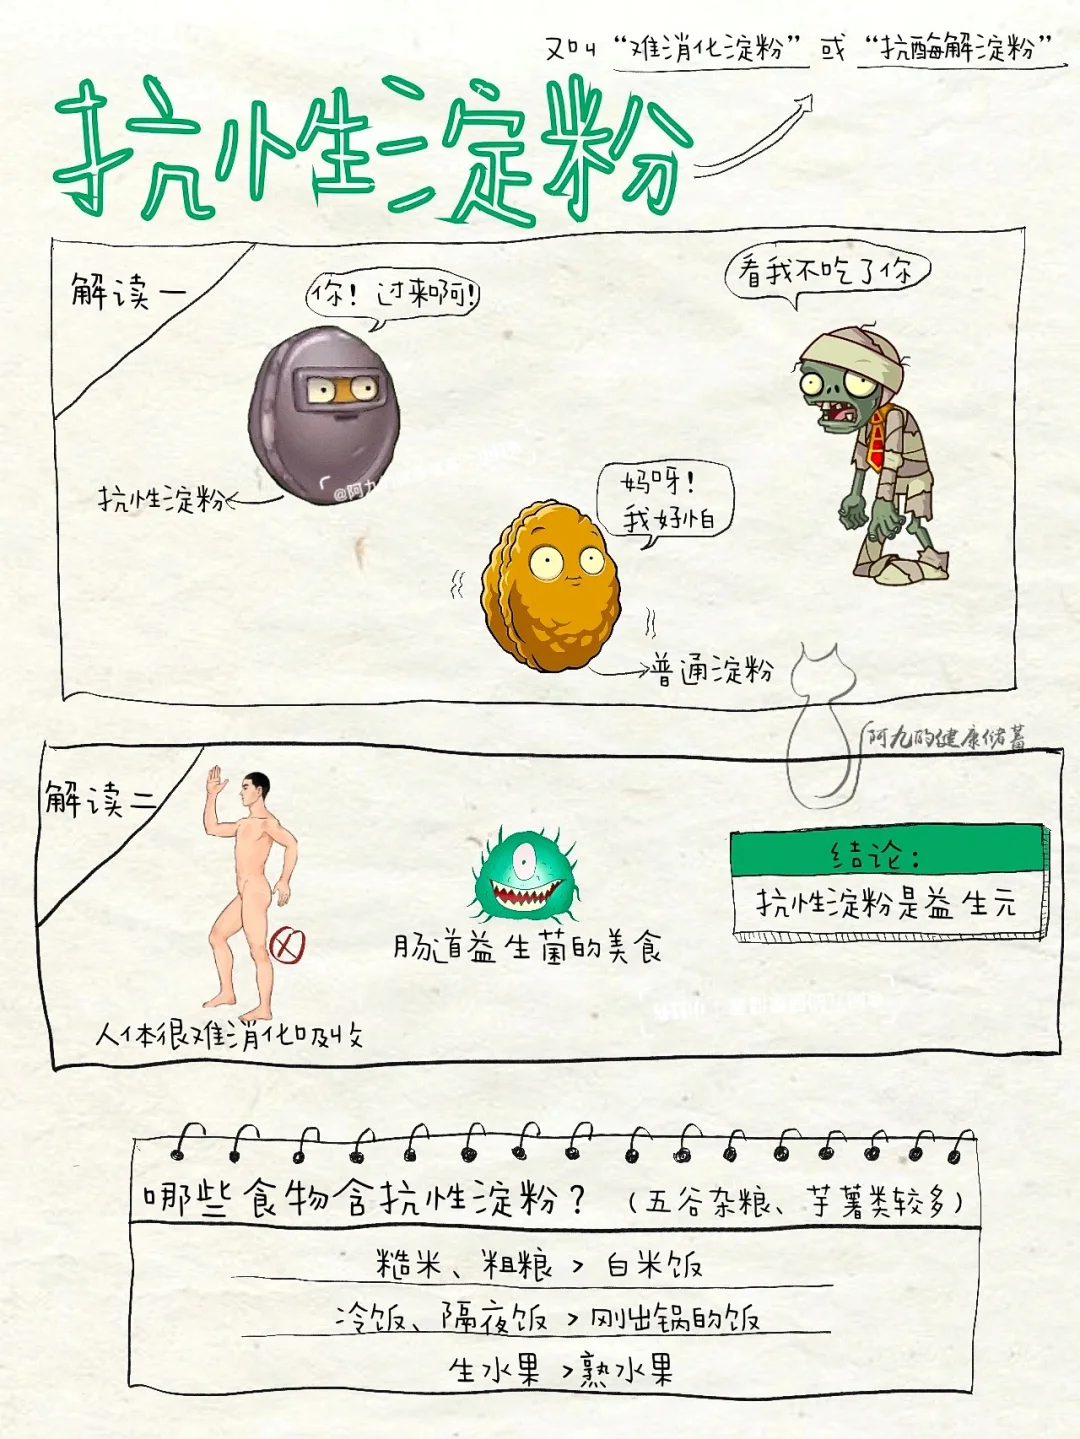 又叫“难消化淀粉”或“抗酶解淀粉”
抗性淀粉
解读一
你！过来啊！
看我不吃了你
抗性淀粉
妈呀！
我好怕
普通淀粉
阿九的健康储蓄
解读二
结论：
抗性淀粉是益生元
肠道益生菌的美食
人体很难消化吸收
哪些食物含抗性淀粉？（五谷杂粮、芋薯类较多）
糙米、粗粮 > 白米饭
冷饭、隔夜饭 > 刚出锅的饭
生水果 > 熟水果